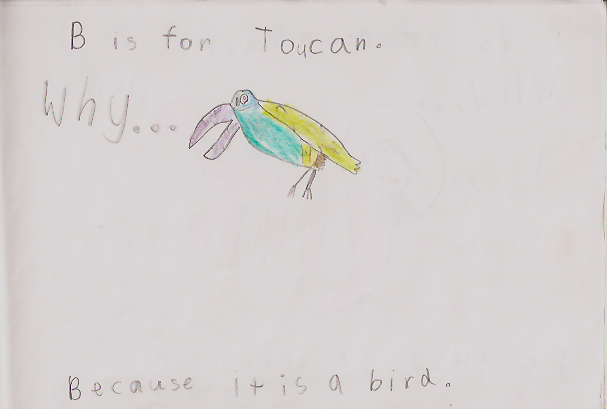 B is for Toucan.
Why...
Because it is a bird.